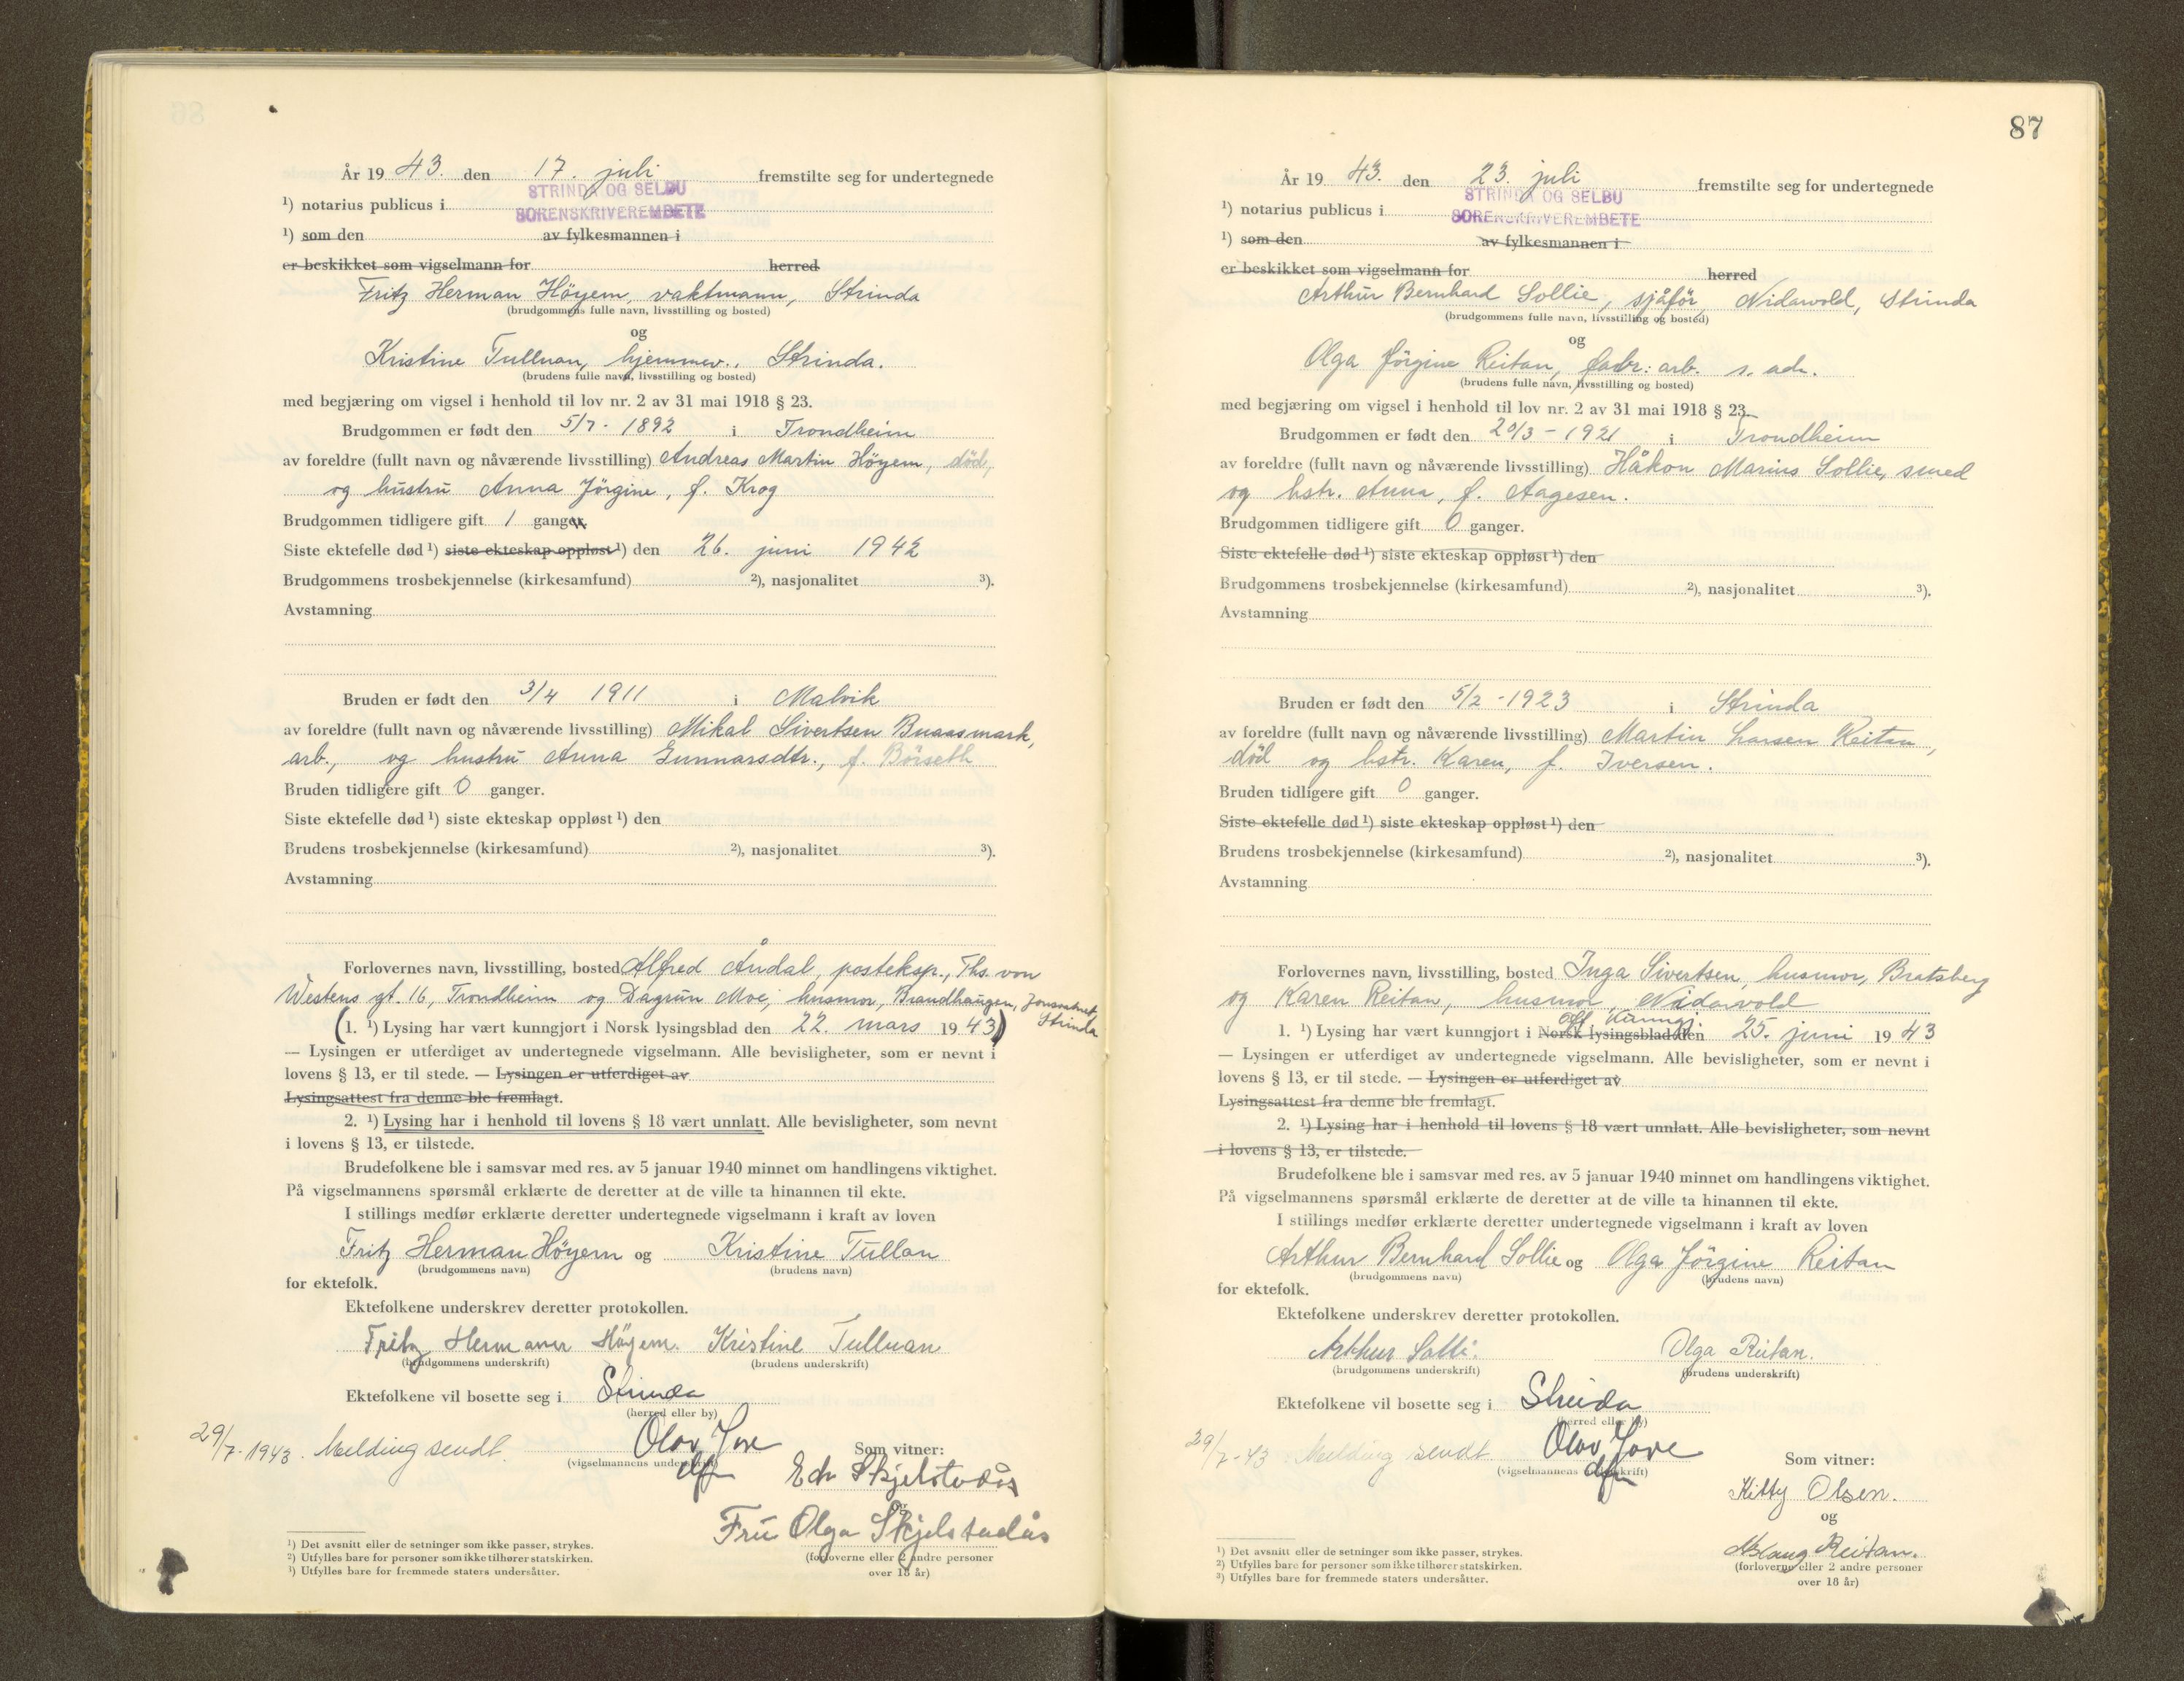 År 1943. den 17. juli fremstilte seg for undertegnede
STRINDA OG SELBU
¹) notarius publicus i SORENSKRIVEREMBETE
¹) som den av fylkesmannen i
er beskikket som vigselmann for herred
Fritz Herman Höyem, vaktmann, Strinda
(brudgommens fulle navn, livsstilling og bosted)
og
Kristine Tulluan, hjemmev., Strinda.
(brudens fulle navn, livsstilling og bosted)
med begjæring om vigsel i henhold til lov nr. 2 av 31 mai 1918 § 23.
Brudgommen er født den 5/7 - 1892 i Trondheim
av foreldre (fullt navn og nåværende livsstilling) Andreas Martin Höyem, död,
og hustru Anna Jörgine, f. Krog
Brudgommen tidligere gift 1 ganger
Siste ektefelle død ¹) siste ekteskap oppløst ¹) den 26. juni 1942
Brudgommens trosbekjennelse (kirkesamfund) ²), nasjonalitet ³).
Avstamning
Bruden er født den 3/4 1911 i Malvik
av foreldre (fullt navn og nåværende livsstilling) Mikal Sivertsen Buaasmark,
arb., og hustru Anna Gunnarsdtr., f. Börseth
Bruden tidligere gift 0 ganger.
Siste ektefelle død ¹) siste ekteskap oppløst ¹) den
Brudens trosbekjennelse (kirkesamfund) ²), nasjonalitet ³).
Avstamning
Forlovernes navn, livsstilling, bosted Alfred Åndal, posteksp., Ths. von
Westens gt. 16, Trondheim og Dagrun Moe, husmor, Brandhaugen, Jonsvatnet,
Strinda
(1. ¹) Lysing har vært kunngjort i Norsk lysingsblad den 22. mars 1943)
— Lysingen er utferdiget av undertegnede vigselmann. Alle bevisligheter, som er nevnt i
lovens § 13, er til stede. — Lysingen er utferdiget av
Lysingsattest fra denne ble fremlagt.
2. ¹) Lysing har i henhold til lovens § 18 vært unnlatt. Alle bevisligheter, som nevnt
i lovens § 13, er tilstede.
Brudefolkene ble i samsvar med res. av 5 januar 1940 minnet om handlingens viktighet.
På vigselmannens spørsmål erklærte de deretter at de ville ta hinannen til ekte.
I stillings medfør erklærte deretter undertegnede vigselmann i kraft av loven
Fritz Herman Höyem og Kristine Tullan
(brudgommens navn) (brudens navn)
for ektefolk.
Ektefolkene underskrev deretter protokollen.
Fritz Herman Höyem. Kristine Tulluan
(brudgommens underskrift) (brudens underskrift)
Ektefolkene vil bosette seg i Strinda
(herred eller by)
29/7-1943. Melding sendt. Olav
(vigselmannens underskrift)
Som vitner:
Fru Olga Skjelstadås
(forloverne eller 2 andre personer
over 18 år)
¹) Det avsnitt eller de setninger som ikke passer, strykes.
²) Utfylles bare for personer som ikke tilhører statskirken.
³) Utfylles bare for fremmede staters undersåtter.
87
År 1943. den 23. juli fremstilte seg for undertegnede
STRINDA OG SELBU
¹) notarius publicus i SORENSKRIVEREMBETE
¹) som den av fylkesmannen i
er beskikket som vigselmann for herred
Arthur Bernhard Sollie, sjåför, Nidarvold, Strinda
(brudgommens fulle navn, livsstilling og bosted)
og
Olga Jörgine Reitan, fabr: arb. s. adr.
(brudens fulle navn, livsstilling og bosted)
med begjæring om vigsel i henhold til lov nr. 2 av 31 mai 1918 § 23.
Brudgommen er født den 20/3 - 1921 i Trondheim
av foreldre (fullt navn og nåværende livsstilling) Håkon Marius Sollie, smed
og hstr. Anna, f. Aagesen.
Brudgommen tidligere gift 0 ganger.
Siste ektefelle død ¹) siste ekteskap oppløst ¹) den
Brudgommens trosbekjennelse (kirkesamfund) ²), nasjonalitet ³).
Avstamning
Bruden er født den 5/2 - 1923 i Strinda
av foreldre (fullt navn og nåværende livsstilling) Martin Larsen Reitan,
död og hstr. Karen, f. Iversen.
Bruden tidligere gift 0 ganger.
Siste ektefelle død ¹) siste ekteskap oppløst ¹) den
Brudens trosbekjennelse (kirkesamfund) ²), nasjonalitet ³).
Avstamning
Forlovernes navn, livsstilling, bosted Inga Sivertsen, husmor, Bratsberg
og Karen Reitan, husmor, Nidarvold
off. kunngj.
1. ¹) Lysing har vært kunngjort i Norsk lysingsblad den 25. juni 1943
— Lysingen er utferdiget av undertegnede vigselmann. Alle bevisligheter, som er nevnt i
lovens § 13, er til stede. — Lysingen er utferdiget av
Lysingsattest fra denne ble fremlagt.
2. ¹) Lysing har i henhold til lovens § 18 vært unnlatt. Alle bevisligheter, som nevnt
i lovens § 13, er tilstede.
Brudefolkene ble i samsvar med res. av 5 januar 1940 minnet om handlingens viktighet.
På vigselmannens spørsmål erklærte de deretter at de ville ta hinannen til ekte.
I stillings medfør erklærte deretter undertegnede vigselmann i kraft av loven
Arthur Bernhard Sollie og Olga Jörgine Reitan
(brudgommens navn) (brudens navn)
for ektefolk.
Ektefolkene underskrev deretter protokollen.
Arthur Solli. Olga Reitan.
(brudgommens underskrift) (brudens underskrift)
Ektefolkene vil bosette seg i Strinda
(herred eller by)
29/7-43 Melding sendt Olav
(vigselmannens underskrift)
Som vitner:
Kitty Olsen.
og
Reitan.
(forloverne eller 2 andre personer
over 18 år)
¹) Det avsnitt eller de setninger som ikke passer, strykes.
²) Utfylles bare for personer som ikke tilhører statskirken.
³) Utfylles bare for fremmede staters undersåtter.